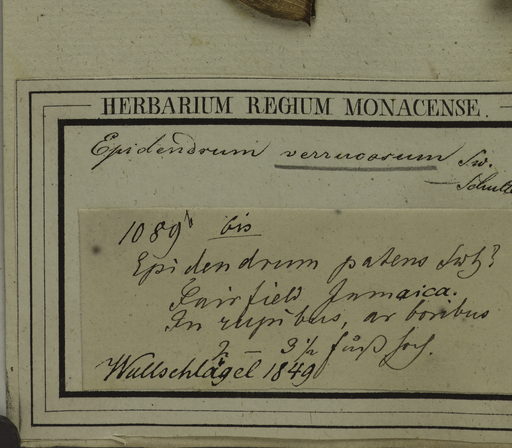 HERBARIUM REGIUM MONACENSE.
Epidendrum verrucosum Sw.
— Schulte
1089b bis
Epidendrum patens Swtz?
Fairfield Jamaica.
In rupibus, arboribus
2 – 3 ½ fuß hoch.
Wullschlägel 1849